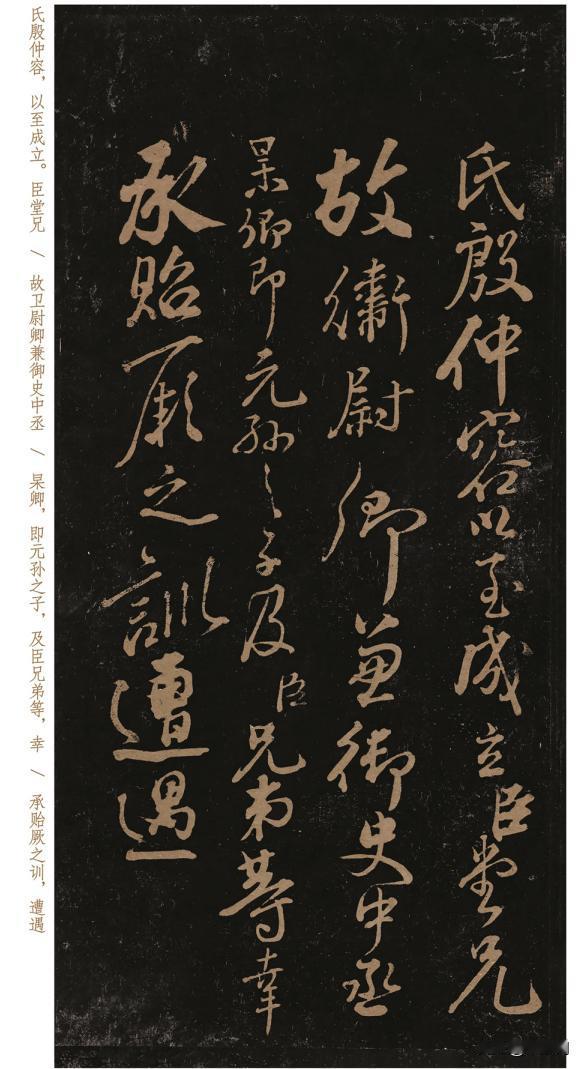 氏殷仲容以至成立臣堂兄
故衞尉卿兼御史中丞
杲卿即元孫之子及臣兄弟等幸
承貽厥之訓遭遇
氏殷仲容，以至成立。臣堂兄 / 故卫尉卿兼御史中丞 / 杲卿，即元孙之子，及臣兄弟等，幸 / 承贻厥之训，遭遇